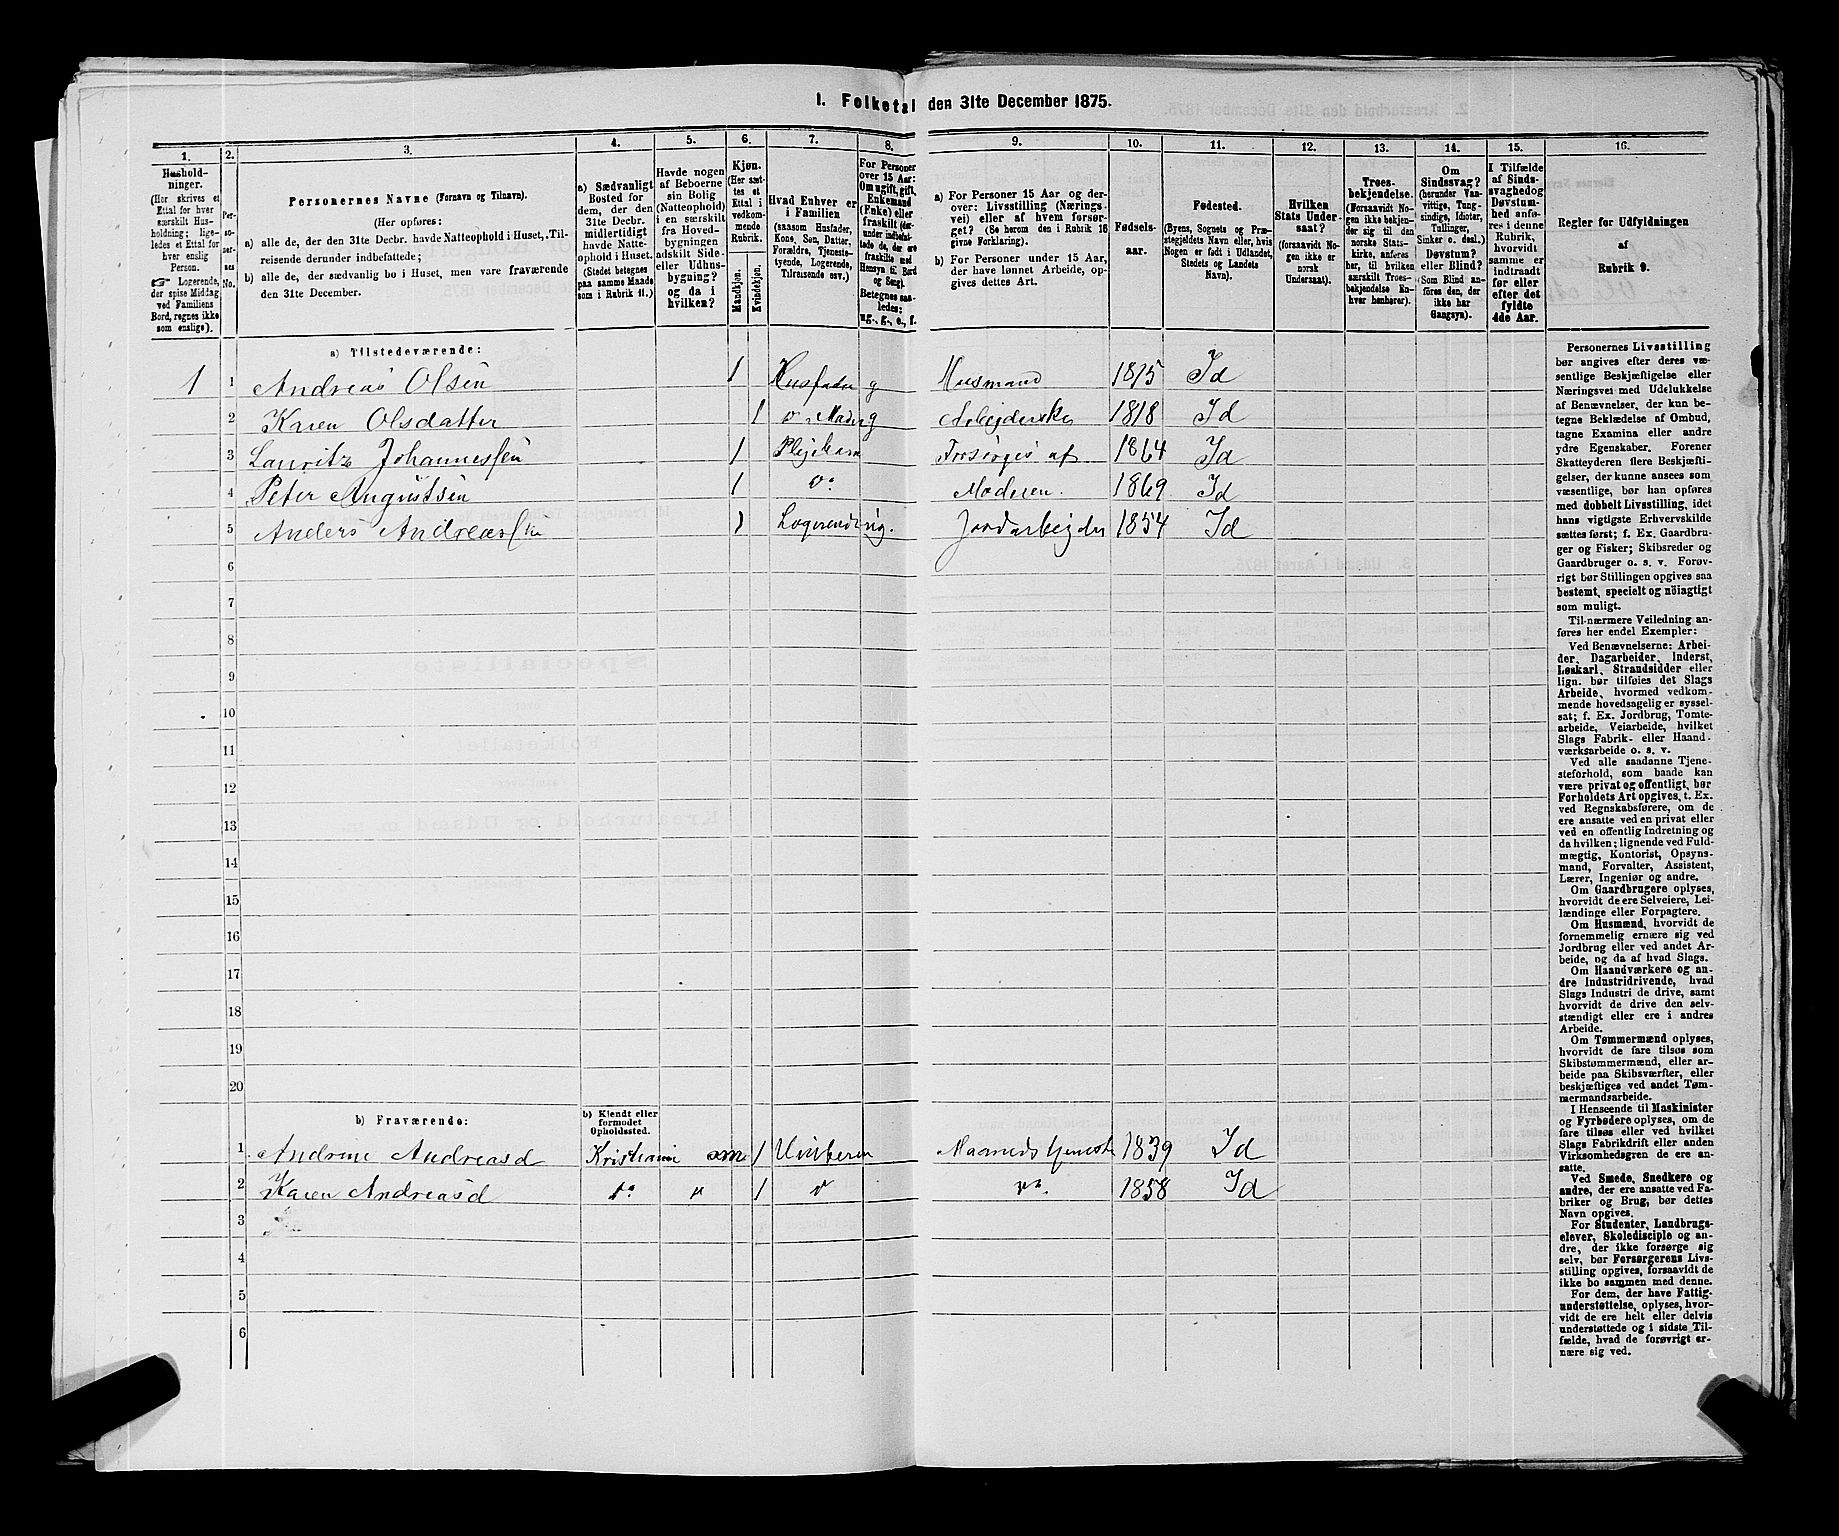 1. Folketal den 31te December 1875.
1. 2. 3. 4. 5. 6. 7. 8. 9. 10. 11. 12. 13. 14. 15. 16.
Hushold-
ninger.
(Her skrives et
Ettal for hver
særskilt Hus-
holdning; lige-
ledes et Ettal for
hver enslig
Person.
☞ Logerende,
der spise Middag
ved Familiens
Bord, regnes ikke
som enslige).
Per-
so-
ner-
nes
No.
Personernes Navne (Fornavn og Tilnavn).
(Her opføres:
a) alle de, der den 31te Decbr. havde Natteophold i Huset, Til-
reisende derunder indbefattede;
b) alle de, der sædvanlig bo i Huset, men vare fraværende
den 31te December.
a) Sædvanligt
Bosted for
dem, der den
31te Decbr.
midlertidigt
havde Natte-
ophold i Huset.
(Stedet betegnes
paa samme Maade
som i Rubrik 11.)
Havde nogen
af Beboerne
sin Bolig
(Natteophold)
i en særskilt
fra Hoved-
bygningen
adskilt Side-
eller Udhus-
bygning?
og da i
hvilken?
Kjøn.
(Her sæt-
tes et
Ettal i
vedkom-
mende
Rubrik.
Mandkjøn.
Kvindekjøn.
Hvad Enhver er
i Familien
(saasom Husfader,
Kone, Søn, Datter,
Forældre, Tjeneste-
tyende, Logerende,
Tilreisende osv.)
For Personer
over 15 Aar:
Om ugift, gift,
Enkemand
(Enke) eller
fraskilt (der-
under indbefat-
tede de, der ere
fraskilte med
Hensyn til Bord
og Seng).
Betegnes saa-
ledes:
ug., g., e., f.
a) For Personer 15 Aar og der-
over: Livsstilling (Nærings-
vei) eller af hvem forsør-
get? (Se herom den i Rubrik 16
givne Forklaring).
b) For Personer under 15 Aar,
der have lønnet Arbeide, op-
gives dettes Art.
Fødsels-
aar.
Fødested.
(Byens, Sognets og Præ-
stegjeldets Navn eller, hvis
Nogen er født i Udlandet,
Stedets og Landets
Navn).
Hvilken
Stats Under-
saat?
(foraavidt No-
gen ikke er
norsk
Undersaat).
Troes-
bekjendelse.
(Forsaavidt No-
gen ikke bekjen-
der sig til den
norske Stats-
kirke, anføres
her, til hvilken
særskilt Troes-
bekjendelse En-
hver henhører).
Om
Sindssvag?
(herunder Van-
vittige, Tung-
sindige, Idioter,
Tullinger,
Sinker o. desl.)
Døvstum?
eller Blind?
(Som Blind an-
føres den, der
ikke har
Gangsyn).
I Tilfælde
af Sinds-
svaghed og
Døvstum-
hed anfø-
res i denne
Rubrik,
hvorvidt
samme er
indtraadt
før eller
efter det
fyldte
4de Aar.
Regler for Udfyldningen
af
Rubrik 9.
a) Tilstedeværende:
1 1 Andreas Olsen 1 Husfader g Husmand 1815 Id
2 Karen Olsdatter 1 g Arbejderske 1818 Id
3 Lauritz Johannessen 1 Plejebarn Forsørges af 1864 Id
4 Peter Augustsen 1 do Moderen. 1869 Id
5 Anders Andreassen 1 Logerende ug. Jordarbejder 1854 Id
6
7
8
9
10
11
12
13
14
15
16
17
18
19
20
b) Fraværende:
b) Kjendt eller
formodet
Opholdssted.
1 Andrine Andreasd Kristiania 1 1839 Id
2 Karen Andreasd do " 1 do 1858 Id
3
4
5
6
Personernes Livsstilling
bør angives efter deres væ-
sentlige Beskjæftigelse eller
Næringsvei med Udelukkelse
af Benævnelser, der kun be-
tegne Beklædelse af Ombud,
tagne Examina eller andre
ydre Egenskaber. Forener
Skatteyderen flere Beskjæfti-
gelser, der kunne ansees som
væsentlige, bør han opføres
med dobbelt Livsstilling, idet
hans vigtigste Erhvervskilde
sættes først; f. Ex. Gaardbru-
ger og Fisker; Skibsreder og
Gaardbruger o. s. v. Forøv-
rigt bør Stillingen opgives saa
bestemt, specielt og nøiagtigt
som muligt.
Til nærmere Veiledning an-
føres her endel Exempler:
Ved Benævnelserne: Arbei-
der, Dagarbeider, Inderst,
Løskarl, Strandsidder eller
lign. bør tilføies det Slags
Arbeide, hvormed vedkom-
mende hovedsagelig er syssel-
sat; f. Ex. Jordbrug, Tomte-
arbeide, Veiarbeide, hvilket
Slags Fabrik- eller Haand-
værksarbeide o. s. v.
Ved alle saadanne Tjene-
steforhold, som baade kan
være privat og offentligt, bør
Forholdets Art opgives, t. Ex.
ved Regnskabsførere, om de
ere ansatte ved en privat eller
ved en offentlig Indretning og
da hvilken; lignende ved Fuld-
mægtig, Kontorist, Opsyns-
mand, Forvalter, Assistent,
Lærer, Ingeniør og andre.
Om Gaardbrugere oplyses,
hvorvidt de ere Selveiere, Lei-
lændinge eller Forpagtere.
Om Husmænd, hvorvidt de
fornemmelig ernære sig ved
Jordbrug eller ved andet Ar-
beide, og da af hvad Slags.
Om Haandværkere og an-
dre Industridrivende, hvad
Slags Industri de drive, samt
hvorvidt de drive den selv-
stændigt eller ere i andres
Arbeide.
Om Tømmermænd oplyses,
hvorvidt de fare tilsøs som
Skibstømmermænd, eller ar-
beide paa Skibsværfter, eller
beskjæftiges ved andet Tøm-
mermandsarbeide.
I Henseende til Maskinister
og Fyrbødere oplyses, om de
fare tilsøs eller ved hvilket
Slags Fabrikdrift eller anden
Virksomhedsgren de ere an-
satte.
Ved Smede, Snedkere og
andre, der ere ansatte ved Fa-
briker og Brug, bør dettes
Navn opgives.
For Studenter, Landbrugs-
elever, Skoledisciple og an-
dre, der ikke forsørge sig
selv, bør Forsørgerens Livs-
stilling opgives, forsaavidt de
ikke bo sammen med denne.
For dem, der have Fattig-
understøttelse, oplyses, hvor-
vidt de ere helt eller delvis
understøttede og i sidste Til-
fælde, hvad de forøvrigt er-
nære sig ved.